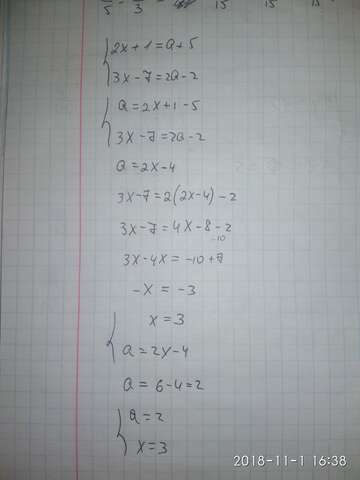 5 3 15 15 15
2x+1=a+5
3x-7=2a-2
a=2x+1-5
3x-7=2a-2
a=2x-4
3x-7=2(2x-4)-2
3x-7=4x-8-2
-10
3x-4x=-10+7
-x=-3
x=3
a=2x-4
a=6-4=2
a=2
x=3
2018-11-1 16:38